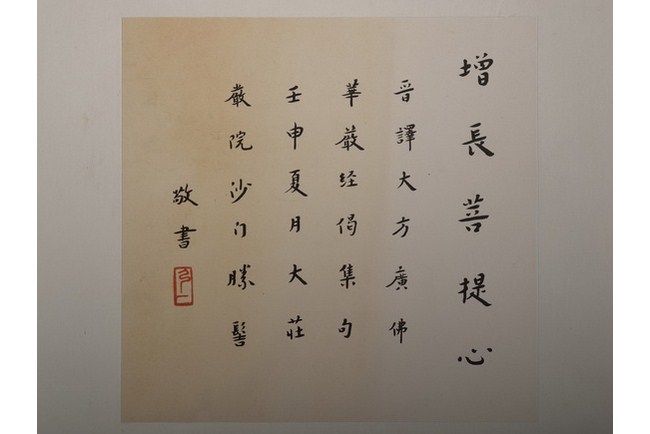 增長菩提心
晉譯大方廣佛
華嚴經偈集句
壬申夏月大莊
嚴院沙门勝髻
敬書
弘一